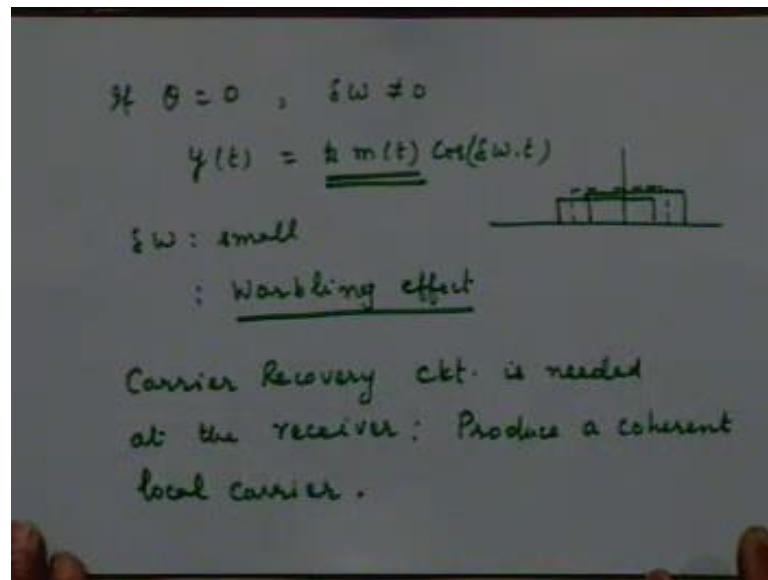 If θ = 0 , δω ≠ 0
y(t) = k m(t) Cos(δω.t)
δω : small
: Warbling effect
Carrier Recovery ckt. is needed
at the receiver : Produce a coherent
local carrier .